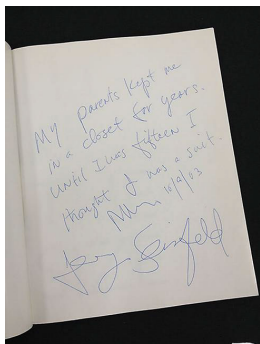 My parents kept me
in a closet for years.
Until I was fifteen I
thought I was a suit.
10/9/03
Jerry Seinfeld